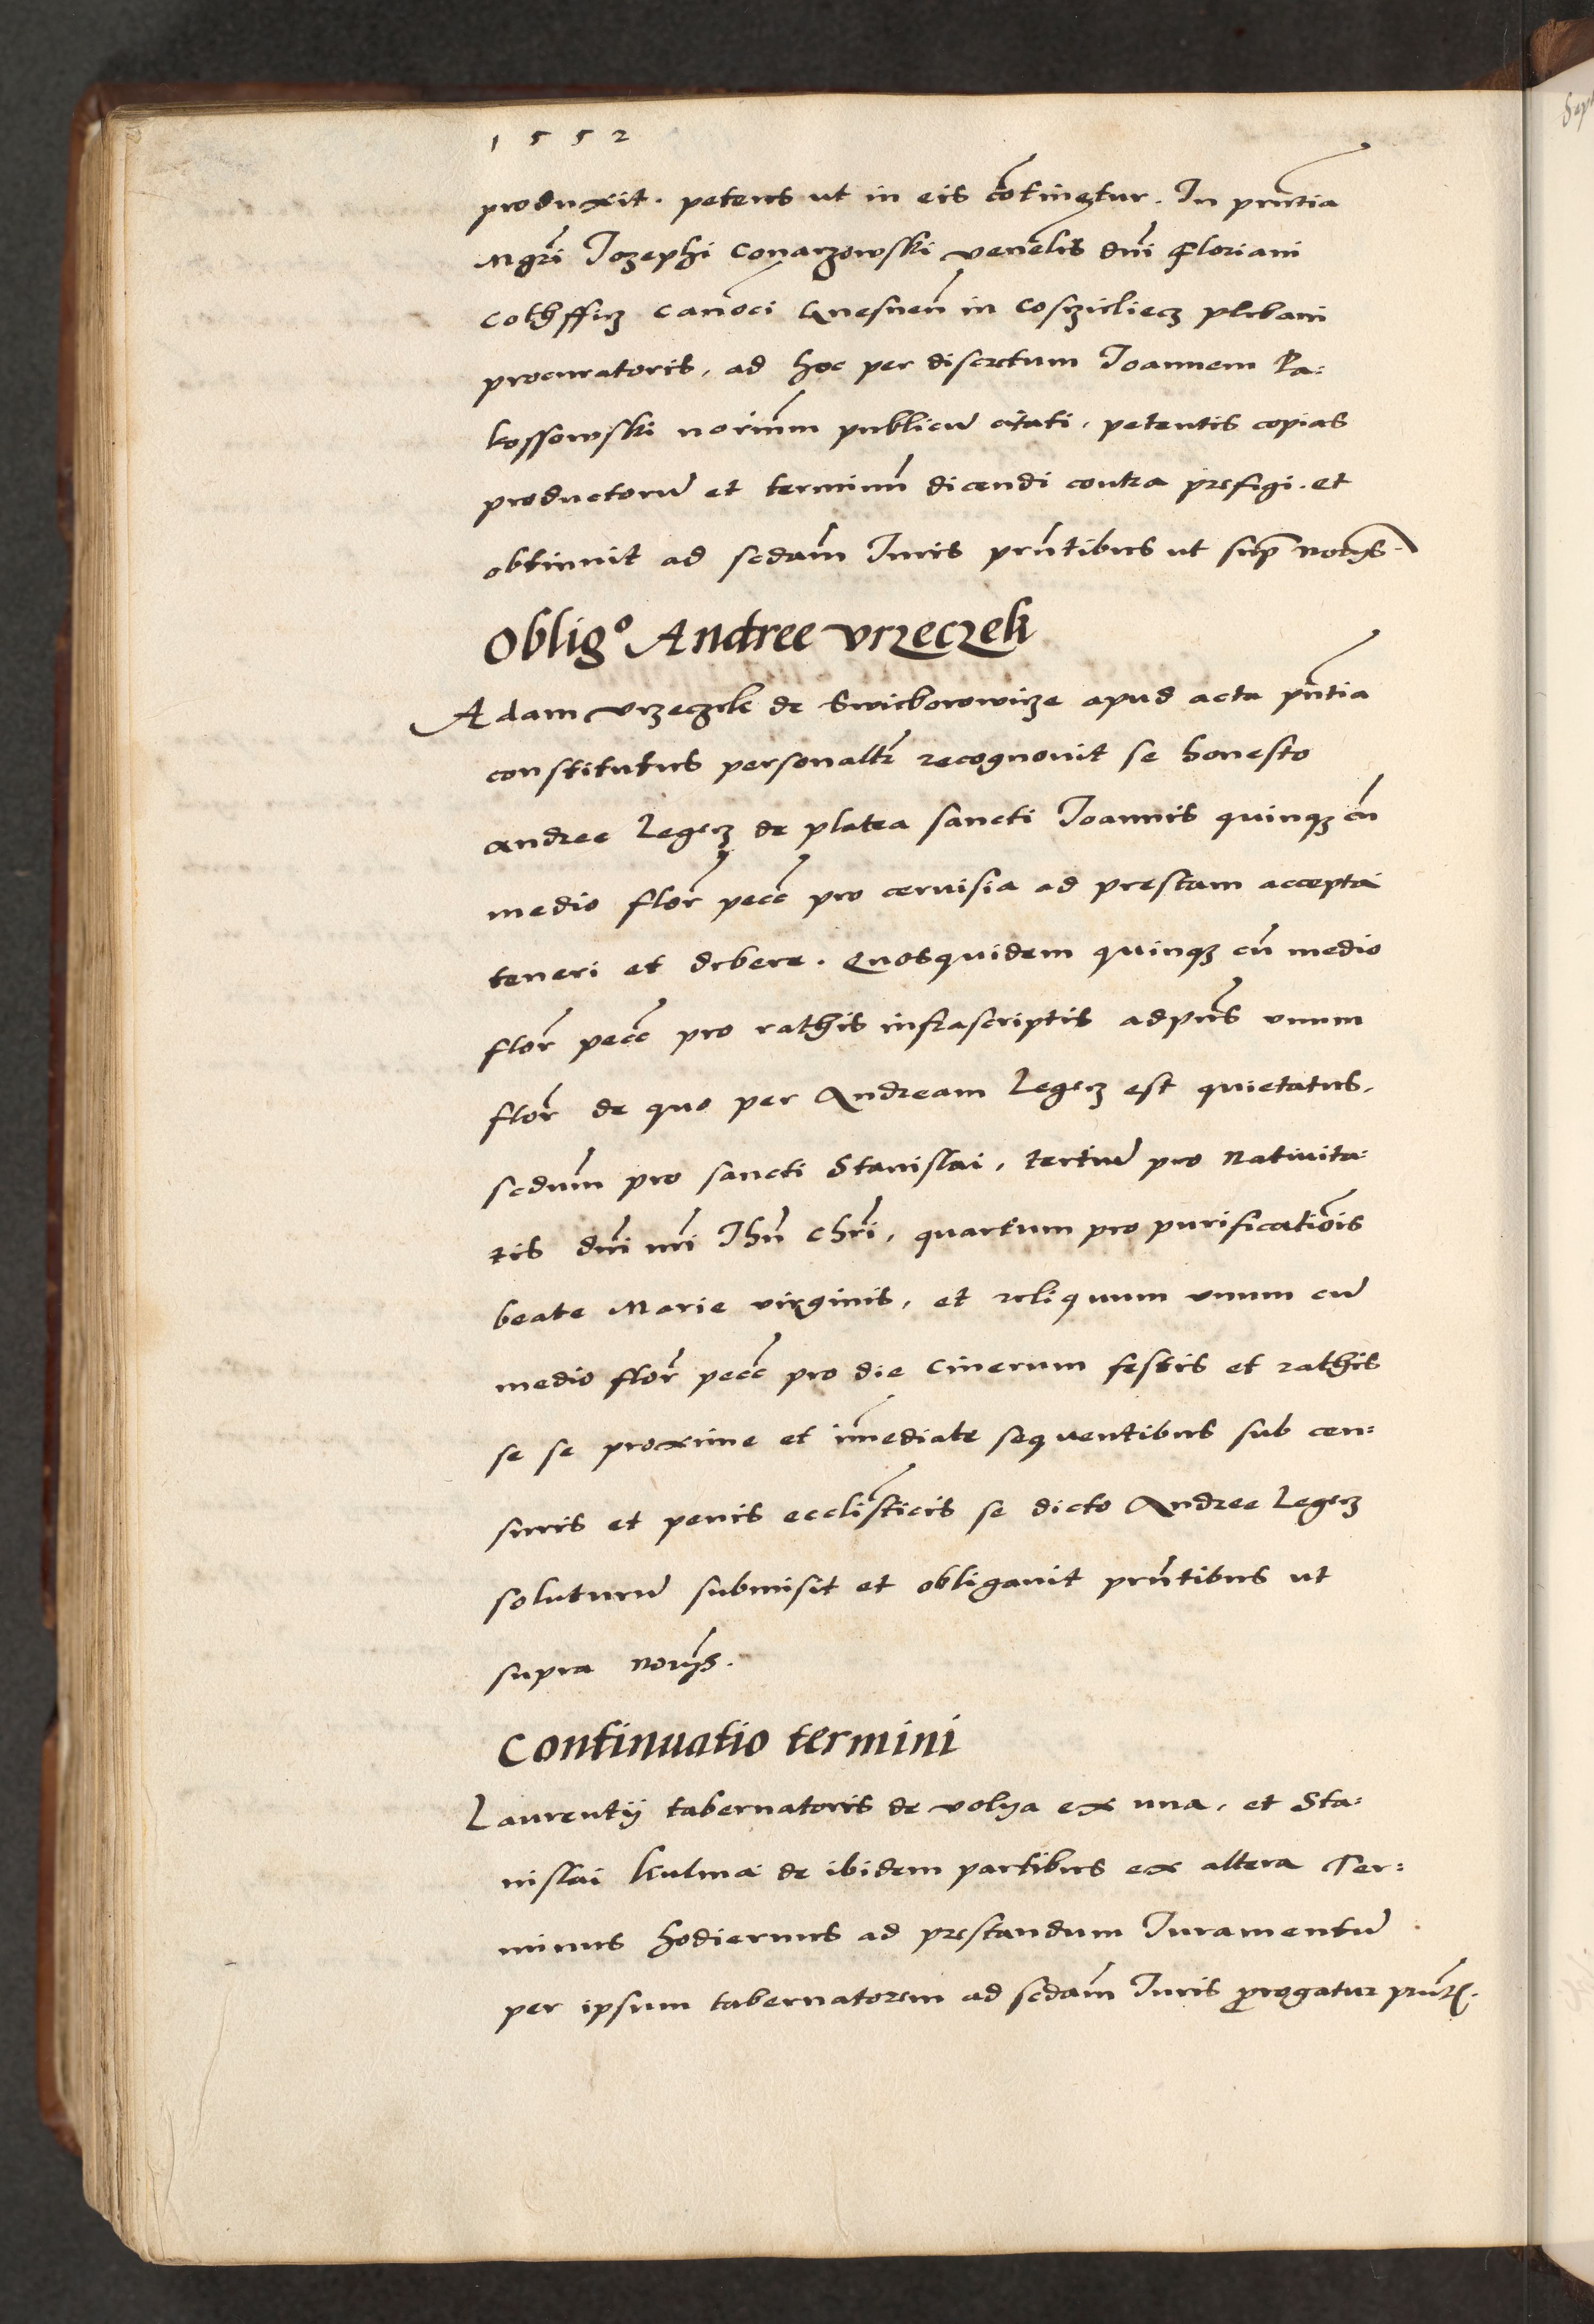 1552
produxit. petens ut in eis cōtinetur. In pn̄tia
Mgr̄i Jozephi Conarzowski venēlis dn̄i Floriani
Cothfficz canōci Gnesnen̄ in Cosczieliecz plebani
procuratoris, ad hoc per discretum Joannem Ra=
kossowski nōrium publicū citati, petentis copias
productorū et terminū dicendi contra prefigi. et
obtinuit ad sc̄dam Juris pn̄tibus ut sup̄ notijs.
Oblig° Andree Vrzeczek
Adam Vrzeczek de Swieborowicze apud acta pn̄tia
constitutus personaltr̄ recognovit se honesto
Andree Legecz de platea sancti Joannis quinqz cū
medio flor̄ pecc̄ pro cervisia ad prestam accepta
teneri et debere. Quosquidem quinqz cū medio
flor̄ pecc̄ pro rathis infrascriptis adpn̄s unum
flor̄ de quo per Andream Legecz est quietatus,
sc̄dum pro sancti Stanislai, tertiū pro Nativita=
tis dn̄i nr̄i Jhū Chr̄i, quartum pro purificatiōis
beate Marie virginis, et reliquum unum cū
medio flor̄ pecc̄ pro die Cinerum festis et rathis
se se proxime et īmediate sequentibus sub cen=
suris et penis eccliāsticis se dicto Andree Legecz
soluturū submisit et obligavit pn̄tibus ut
supra norijs.
Continuatio termini
Laurentij tabernatoris de Volya ex una, et Sta=
nislai Kulma de ibidem partibus ex altera Ter=
minus hodiernus ad prestandum Juramentū
per ipsum tabernatorem ad sc̄dam Juris prorogatur pn̄t.